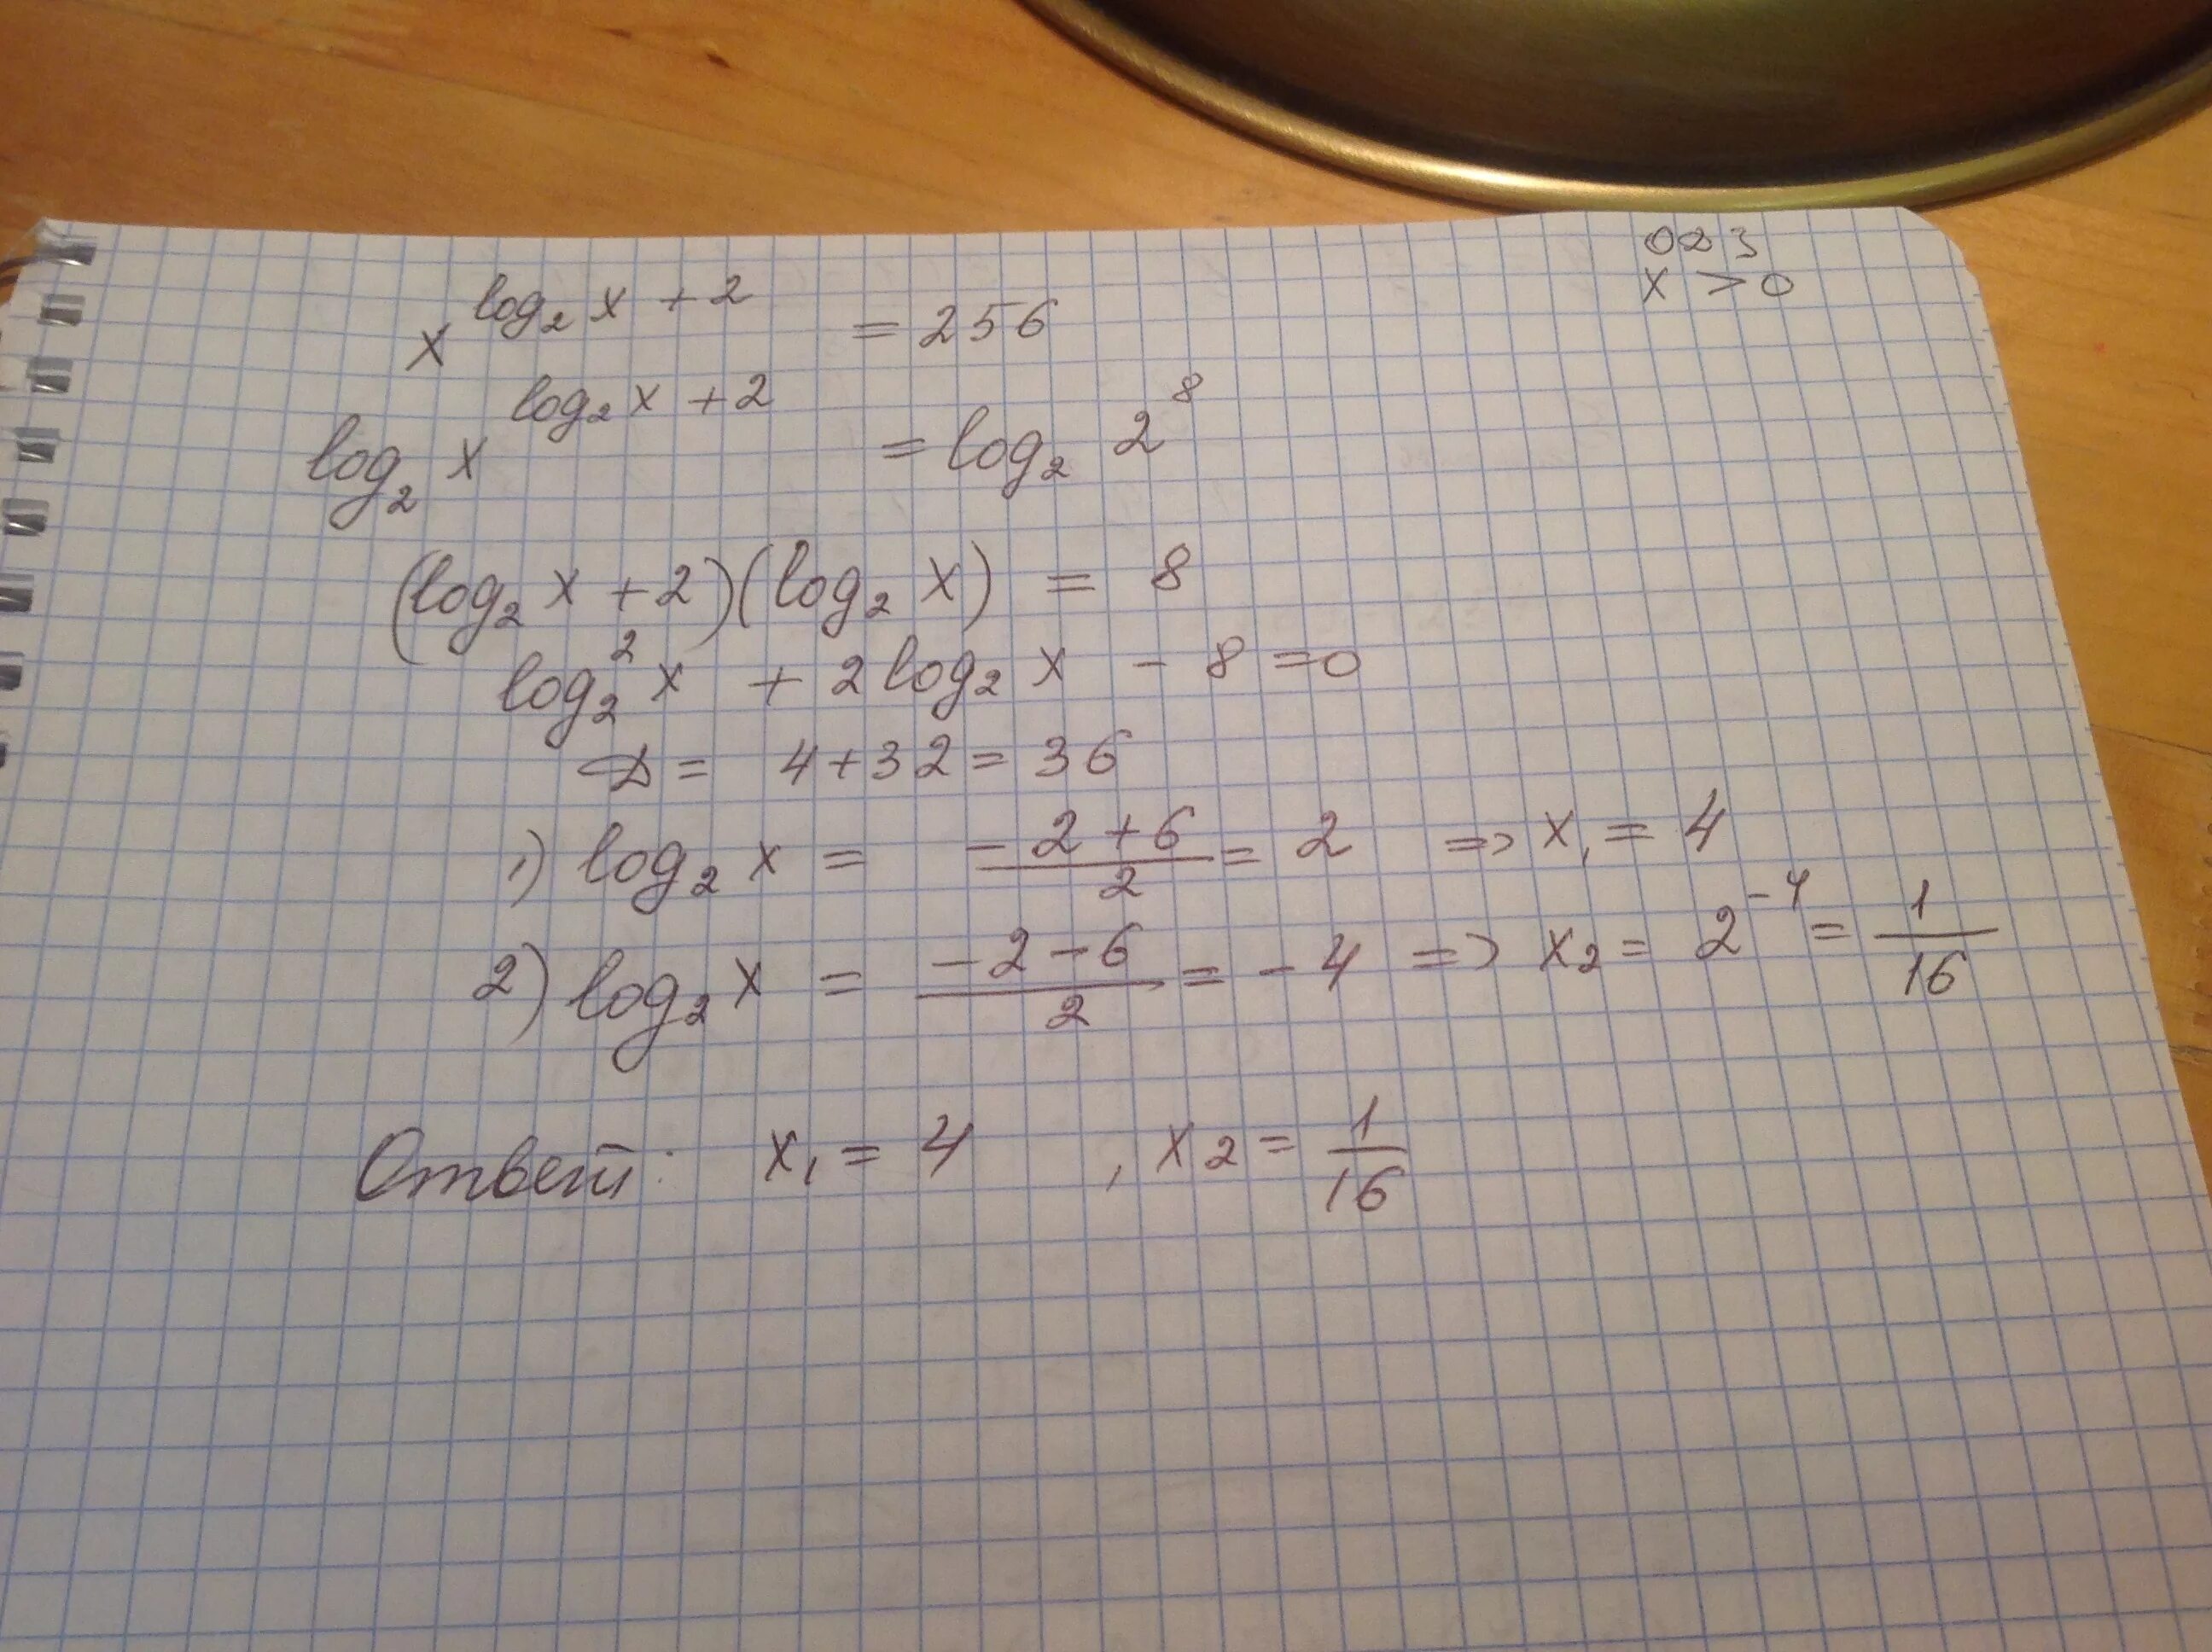 ОДЗ
x > 0
x^(log₂ x + 2) = 256
log₂ x^(log₂ x + 2) = log₂ 2⁸
(log₂ x + 2)(log₂ x) = 8
log₂² x + 2 log₂ x - 8 = 0
D = 4 + 32 = 36
1) log₂ x = (-2 + 6)/2 = 2 => x₁ = 4
2) log₂ x = (-2 - 6)/2 = -4 => x₂ = 2⁻⁴ = 1/16
Ответ: x₁ = 4 , x₂ = 1/16